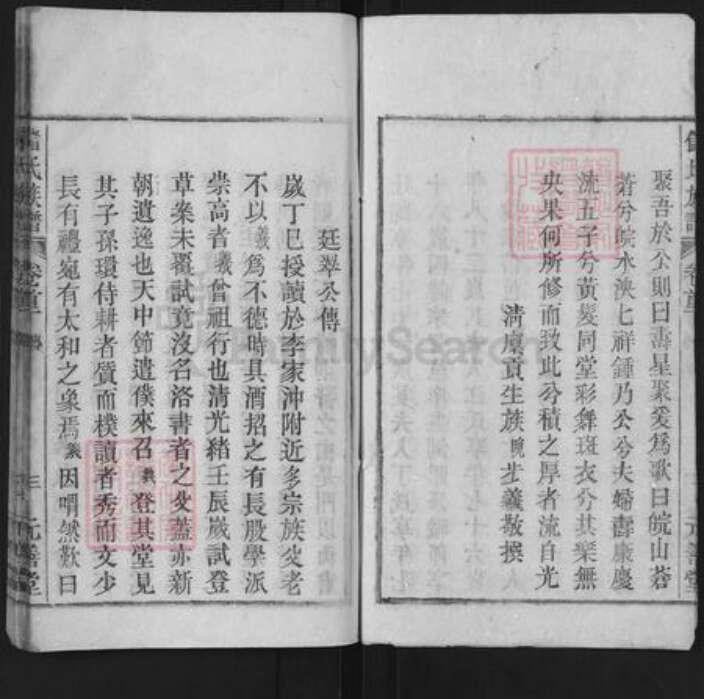 聚吾於公則曰壽星聚爰爲歌曰皖山蒼
蒼兮皖水泱七祥鍾乃公兮夫婦壽康慶
流五子兮黃髮同堂彩舞斑衣兮其樂無
央果何所修而致此兮積之厚者流自光
清廩貢生族晚步義敬撰
元善堂
廷舉公傳
歲丁巳授讀於李家沖附近多宗族父老
不以羲爲不德時具酒招之有長股學派
崇高者羲曾祖行也清光緒壬辰歲試登
草案未覆試竟沒名洛書者之父蓋亦新
朝遺逸也天中節遣僕來召羲登其堂見
其子孫環侍耕者質而樸讀者秀而文少
長有禮宛有太和之象焉羲因喟然歎曰
氏族譜 卷首 三 元善堂
FamilySearch